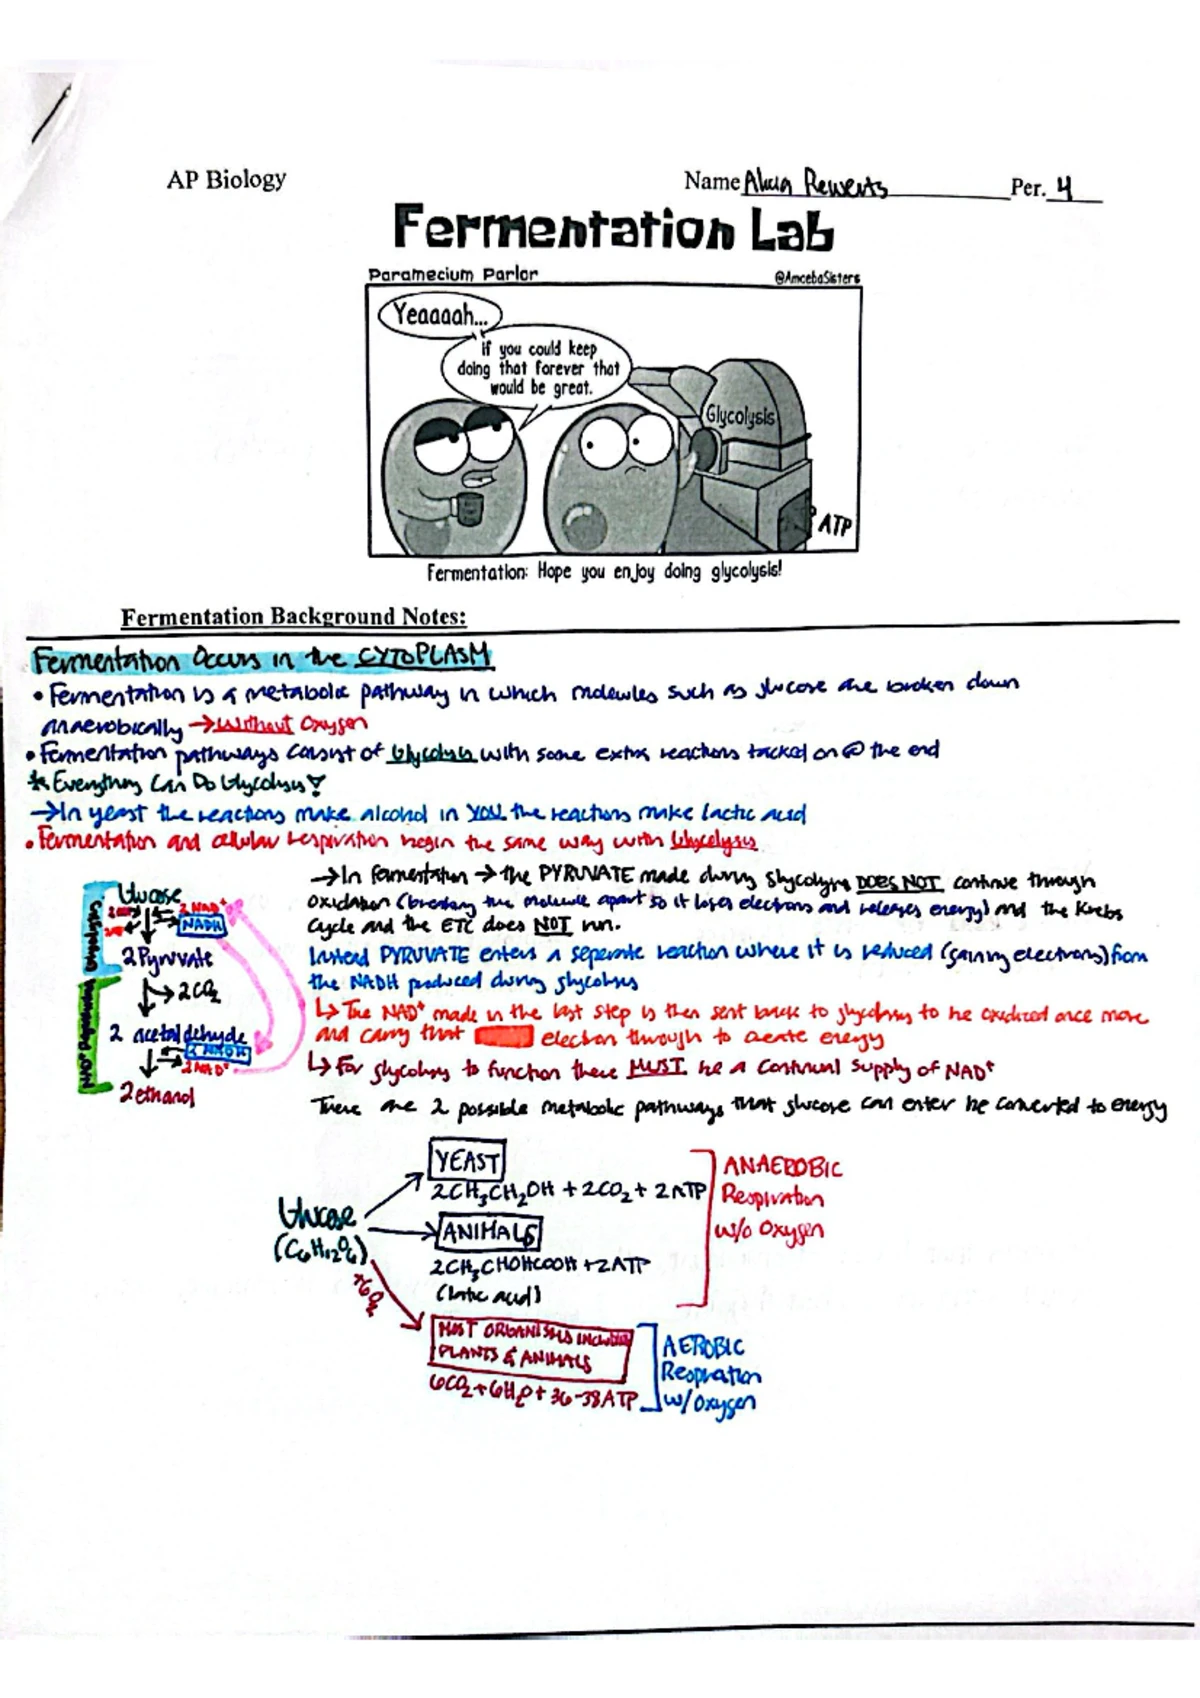 AP Biology
Name Alicia Rewerts Per. 4
Fermentation Lab
Paramecium Parlor @AmoebaSisters
Yeaaaah...
if you could keep
doing that forever that
would be great.
Glycolysis
ATP
Fermentation: Hope you enjoy doing glycolysis!
Fermentation Background Notes:
Fermentation Occurs in the CYTOPLASM
• Fermentation is a metabolic pathway in which molecules such as glucose are broken down
anaerobically → Without Oxygen
• Fermentation pathways consist of Glycolysis with some extra reactions tacked on @ the end
* Everything Can Do Glycolysis!
→ In yeast the reactions make alcohol in YOU the reactions make lactic acid
• Fermentation and cellular respiration begin the same way with Glycolysis
→ In fermentation → the PYRUVATE made during glycolysis DOES NOT continue through
oxidation (breaking the molecule apart so it loses electrons and releases energy) and the Krebs
Cycle and the ETC does NOT run.
Instead PYRUVATE enters a seperate reaction where it is reduced (gaining electrons) from
the NADH produced during glycolysis
↳ The NAD⁺ made in the last step is then sent back to glycolysis to be oxidized once more
and carry that electron through to create energy
↳ For glycolysis to function there MUST be a continual supply of NAD⁺
There are 2 possible metabolic pathways that glucose can enter be converted to energy
Glycolysis
Glucose
2 NAD⁺
NADH
2 Pyruvate
→ 2CO₂
2 acetaldehyde
2 NADH
2 NAD⁺
2 ethanol
Glucose
(C₆H₁₂O₆)
YEAST
2CH₃CH₂OH + 2CO₂ + 2ATP
ANIMALS
2CH₃CHOHCOOH + 2ATP
(latic acid)
ANAEROBIC
Respiration
w/o Oxygen
+6O₂
MOST ORGANISMS INCLUDING
PLANTS & ANIMALS
6CO₂ + 6H₂O + 36-38 ATP
AEROBIC
Respiration
w/ Oxygen